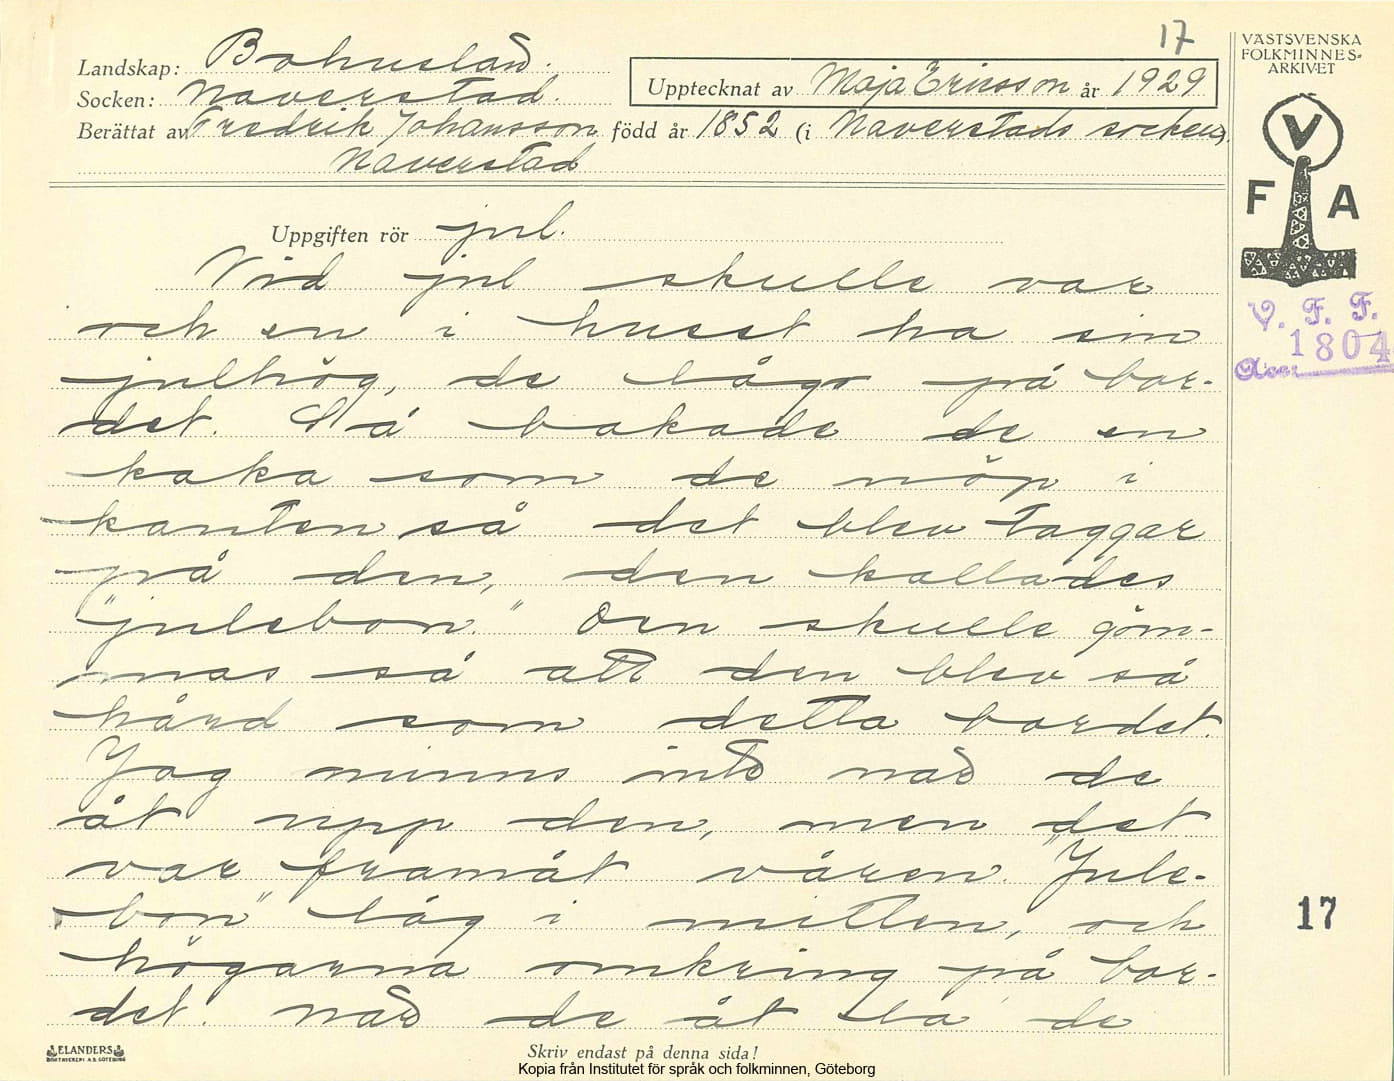 17
Landskap: Bohuslän.
Socken: Naverstad.
Upptecknat av Maja Ericsson år 1929
Berättat av Fredrik Johansson född år 1852 (i Naverstads socken).
Naverstad
VÄSTSVENSKA
FOLKMINNES-
ARKIVET
V
F A
V. F. F.
1804
Uppgiften rör jul.
Vid jul skulle var
och en i huset ha sin
julhög, de lågo på bor-
det. Så bakade de en
kaka som de nöp i
kanten så det blev taggar
på den, den kallades
"julebon." Den skulle göm-
mas så att den blev så
hård som detta bordet.
Jag minns inte när de
åt upp den, men det
var framåt våren. "Jule-
bon" låg i mitten, och
högarna omkring på bor-
det. När de åt la de
17
ELANDERS
BOKTRYCKERI A.B. GÖTEBORG
Skriv endast på denna sida!
Kopia från Institutet för språk och folkminnen, Göteborg